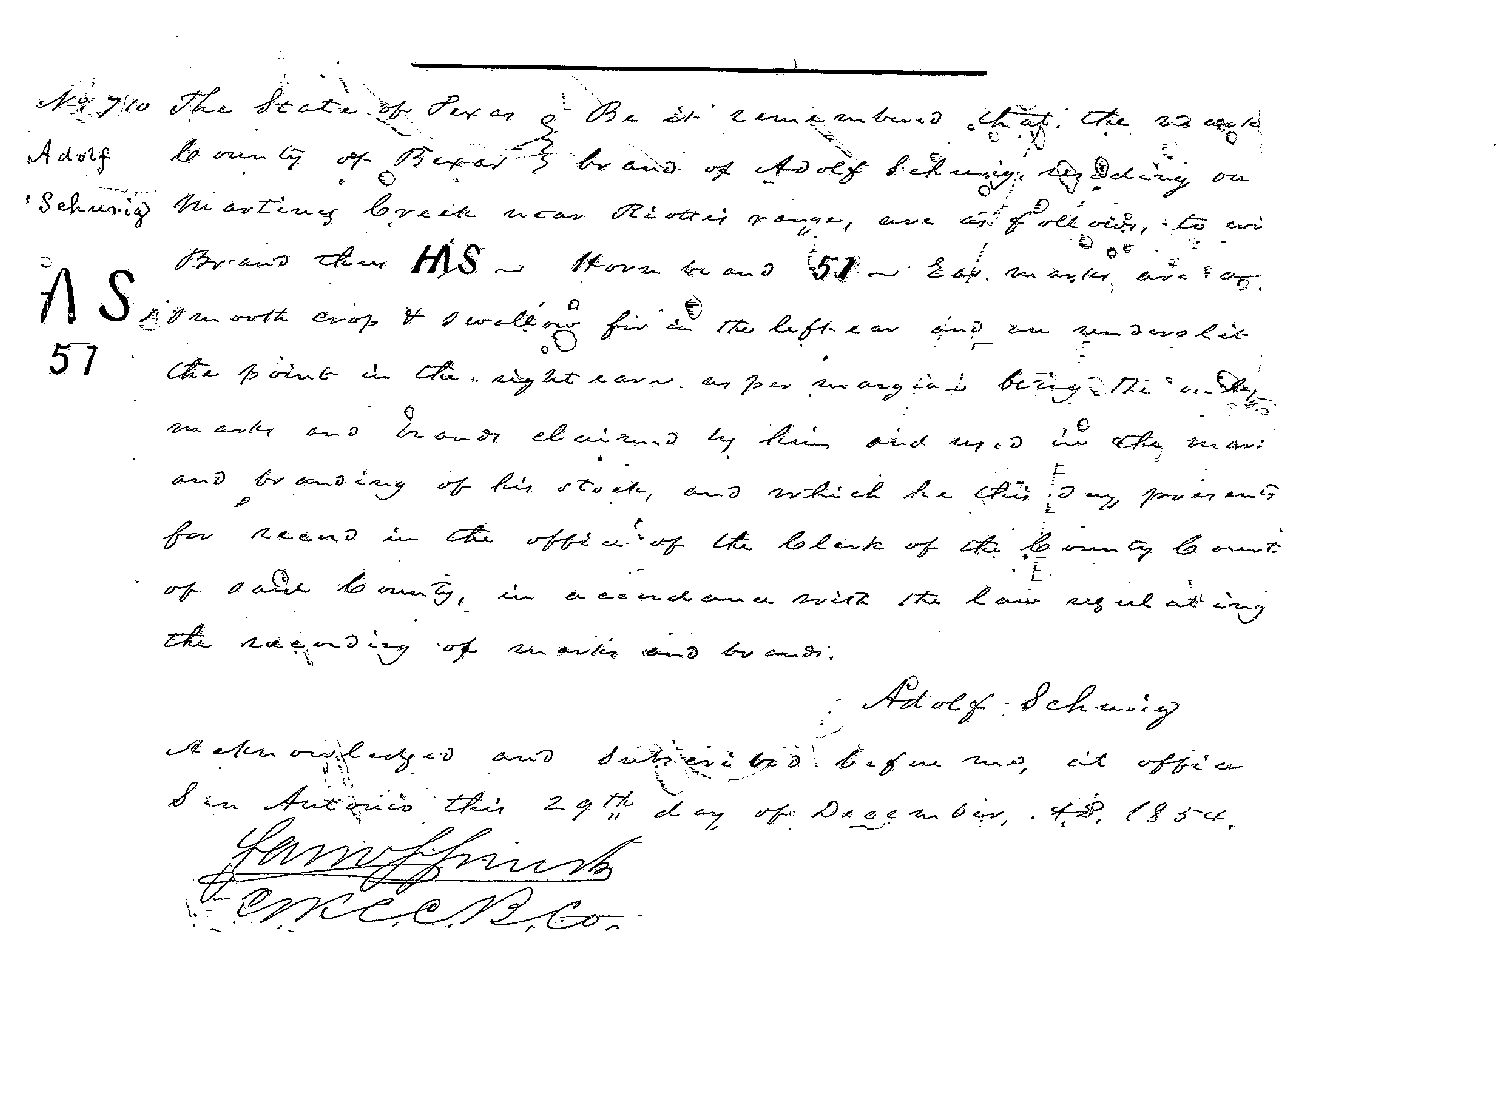 No 710 The State of Texas } Be it remembered that the mark
Adolf County of Bexar } brand of Adolf Schurig residing on
Schurig Martinez Creek near range, are as follows, to wi
Brand thus HS ~ Horn brand 57 ~ Ear marks are a
AS smooth crop & swallow for in the left ear and an underslit
57 the point in the right ear as per margin being the only
marks and brands claimed by him and used in the mar
and branding of his stock, and which he this day presents
for record in the office of the Clerk of the County Court
of said County, in accordance with the law regulating
the recording of marks and brands.
Adolf Schurig
Acknowledged and subscribed before me, at office
San Antonio this 29th day of December, A.D. 1854.
C.C.B.Co.